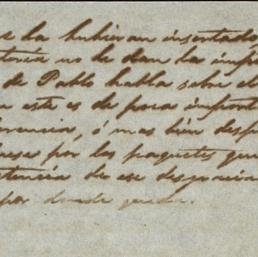 s la hubieran insertado
toria no le dan la imp
de Pablo habla sobre el
este es de poca import
erencia, ó mas bien desp
rese por los paquetes que
tencia de ese desgracia
por donde